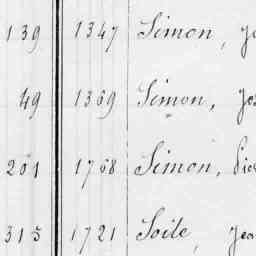 139 1347 Simon, Jo
49 1369 Simon, Jos
201 1768 Simon, Pie
313 1721 Soile, Jea